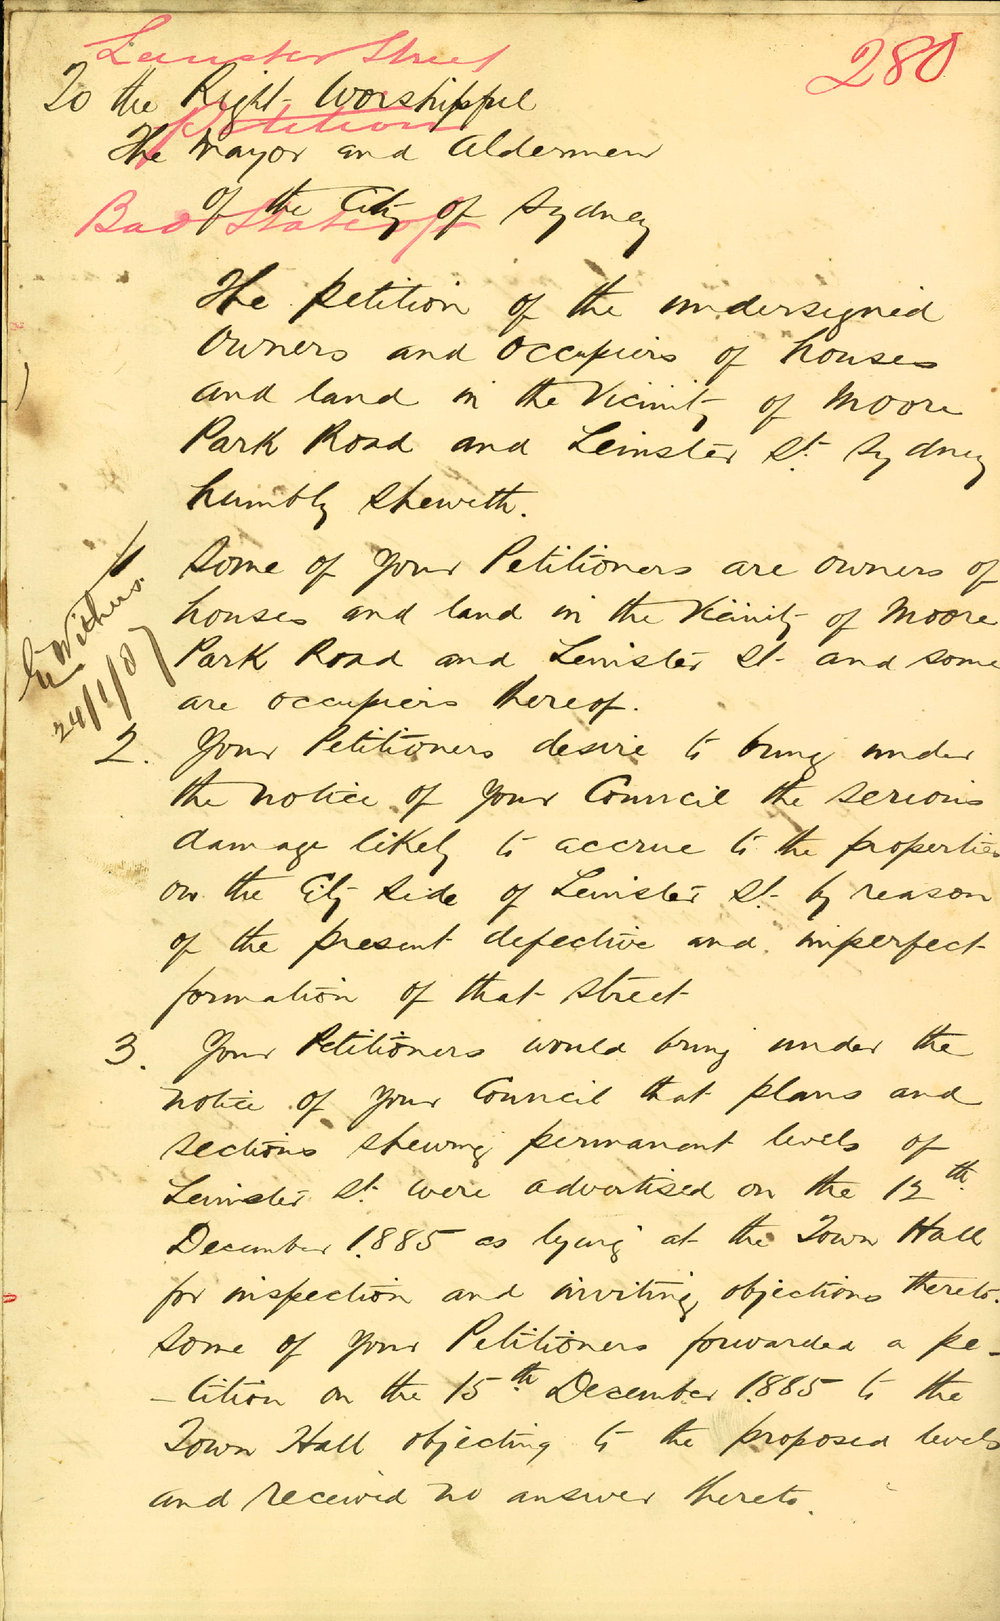 Leinster Street
280
To the Right Worshipful
Petition
The Mayor and Aldermen
of the City of Sydney
Bad State of
The petition of the undersigned
owners and occupiers of houses
and land in the Vicinity of Moore
Park Road and Leinster St. Sydney
humbly sheweth.
1 Some of Your Petitioners are owners of
houses and land in the Vicinity of Moore
Park Road and Leinster St. and some
are occupiers thereof.
Withers
24/1/87
2. Your Petitioners desire to bring under
the notice of Your Council the serious
damage likely to accrue to the properties
on the City side of Leinster St. by reason
of the present defective and imperfect
formation of that street
3. Your Petitioners would bring under the
notice of Your Council that plans and
sections shewing permanent levels of
Leinster St. were advertised on the 12th
December 1885 as lying at the Town Hall
for inspection and inviting objections thereto.
Some of Your Petitioners forwarded a pe-
-tition on the 15th December 1885 to the
Town Hall objecting to the proposed levels
and received no answer thereto.